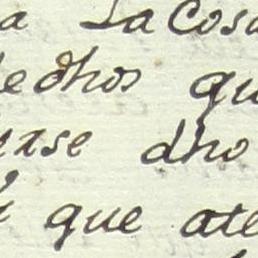 a La Cosa
dedhos qu
erse dho
que ate